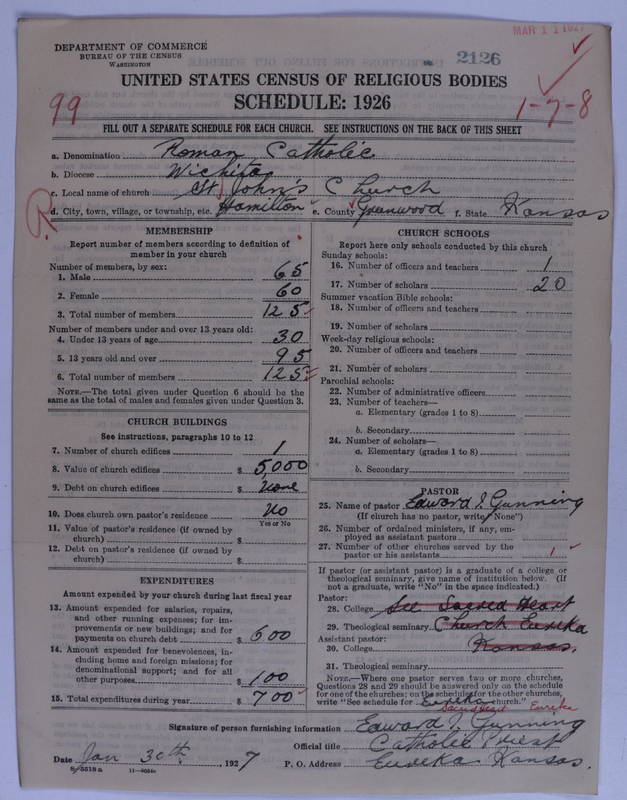 MAR 11 1927
DEPARTMENT OF COMMERCE
BUREAU OF THE CENSUS
WASHINGTON
2126
UNITED STATES CENSUS OF RELIGIOUS BODIES
SCHEDULE: 1926
99
1-7-8
FILL OUT A SEPARATE SCHEDULE FOR EACH CHURCH. SEE INSTRUCTIONS ON THE BACK OF THIS SHEET
a. Denomination Roman Catholic
b. Diocese Wichita
c. Local name of church St. John's Church
d. City, town, village, or township, etc. Hamilton e. County Greenwood f. State Kansas
R
MEMBERSHIP
Report number of members according to definition of
member in your church
Number of members, by sex:
1. Male 65
2. Female 60
3. Total number of members 125
Number of members under and over 13 years old:
4. Under 13 years of age 30
5. 13 years old and over 95
6. Total number of members 125
NOTE.—The total given under Question 6 should be
same as the total of males and females given under Question 3.
CHURCH BUILDINGS
See instructions, paragraphs 10 to 12
7. Number of church edifices 1
8. Value of church edifices $ 5,000
9. Debt on church edifices $ none
10. Does church own pastor's residence No
Yes or No
11. Value of pastor's residence (if owned by
church) $
12. Debt on pastor's residence (if owned by
church) $
EXPENDITURES
Amount expended by your church during last fiscal year
13. Amount expended for salaries, repairs,
and other running expenses; for im-
provements or new buildings; and for
payments on church debt $ 600
14. Amount expended for benevolences, in-
cluding home and foreign missions; for
denominational support; and for all
other purposes $ 100
15. Total expenditures during year $ 700
CHURCH SCHOOLS
Report here only schools conducted by this church
Sunday schools:
16. Number of officers and teachers 1
17. Number of scholars 20
Summer vacation Bible schools:
18. Number of officers and teachers
19. Number of scholars
Week-day religious schools:
20. Number of officers and teachers
21. Number of scholars
Parochial schools:
22. Number of administrative officers
23. Number of teachers—
a. Elementary (grades 1 to 8)
b. Secondary
24. Number of scholars—
a. Elementary (grades 1 to 8)
b. Secondary
PASTOR
25. Name of pastor Edward J. Gunning
(If church has no pastor, write "None")
26. Number of ordained ministers, if any, em-
ployed as assistant pastors
27. Number of other churches served by the
pastor or his assistants 1
If pastor (or assistant pastor) is a graduate of a college or
theological seminary, give name of institution below. (If
not a graduate, write "No" in the space indicated.)
Pastor:
28. College See Sacred Heart
29. Theological seminary Church Eureka
Assistant pastor:
30. College Kansas.
31. Theological seminary
NOTE.—Where one pastor serves two or more churches,
Questions 28 and 29 should be answered only on the schedule
for one of the churches; on the schedules for the other churches,
write "See schedule for Eureka church."
Sacred Heart Eureka
Signature of person furnishing information Edward J. Gunning
Official title Catholic Priest
Date Jan 30th, 1927 P. O. Address Eureka Kansas.
8-5518a 11-9054a